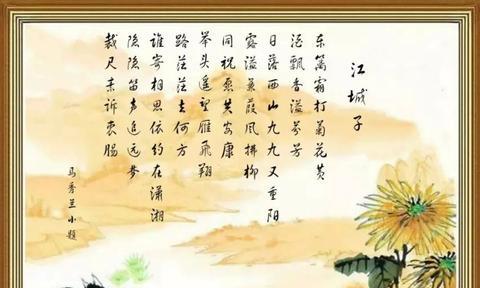 江城子
东篱霜打菊花黄
酒飘香溢芬芳
日落西山九九又重阳
露溢蒹葭风拂柳
同祝愿共安康
举头遥望雁飞翔
路茫茫去何方
谁寄相思依约在潇湘
隐隐笛声追远梦
裁尺素诉衷肠
马秀兰小题